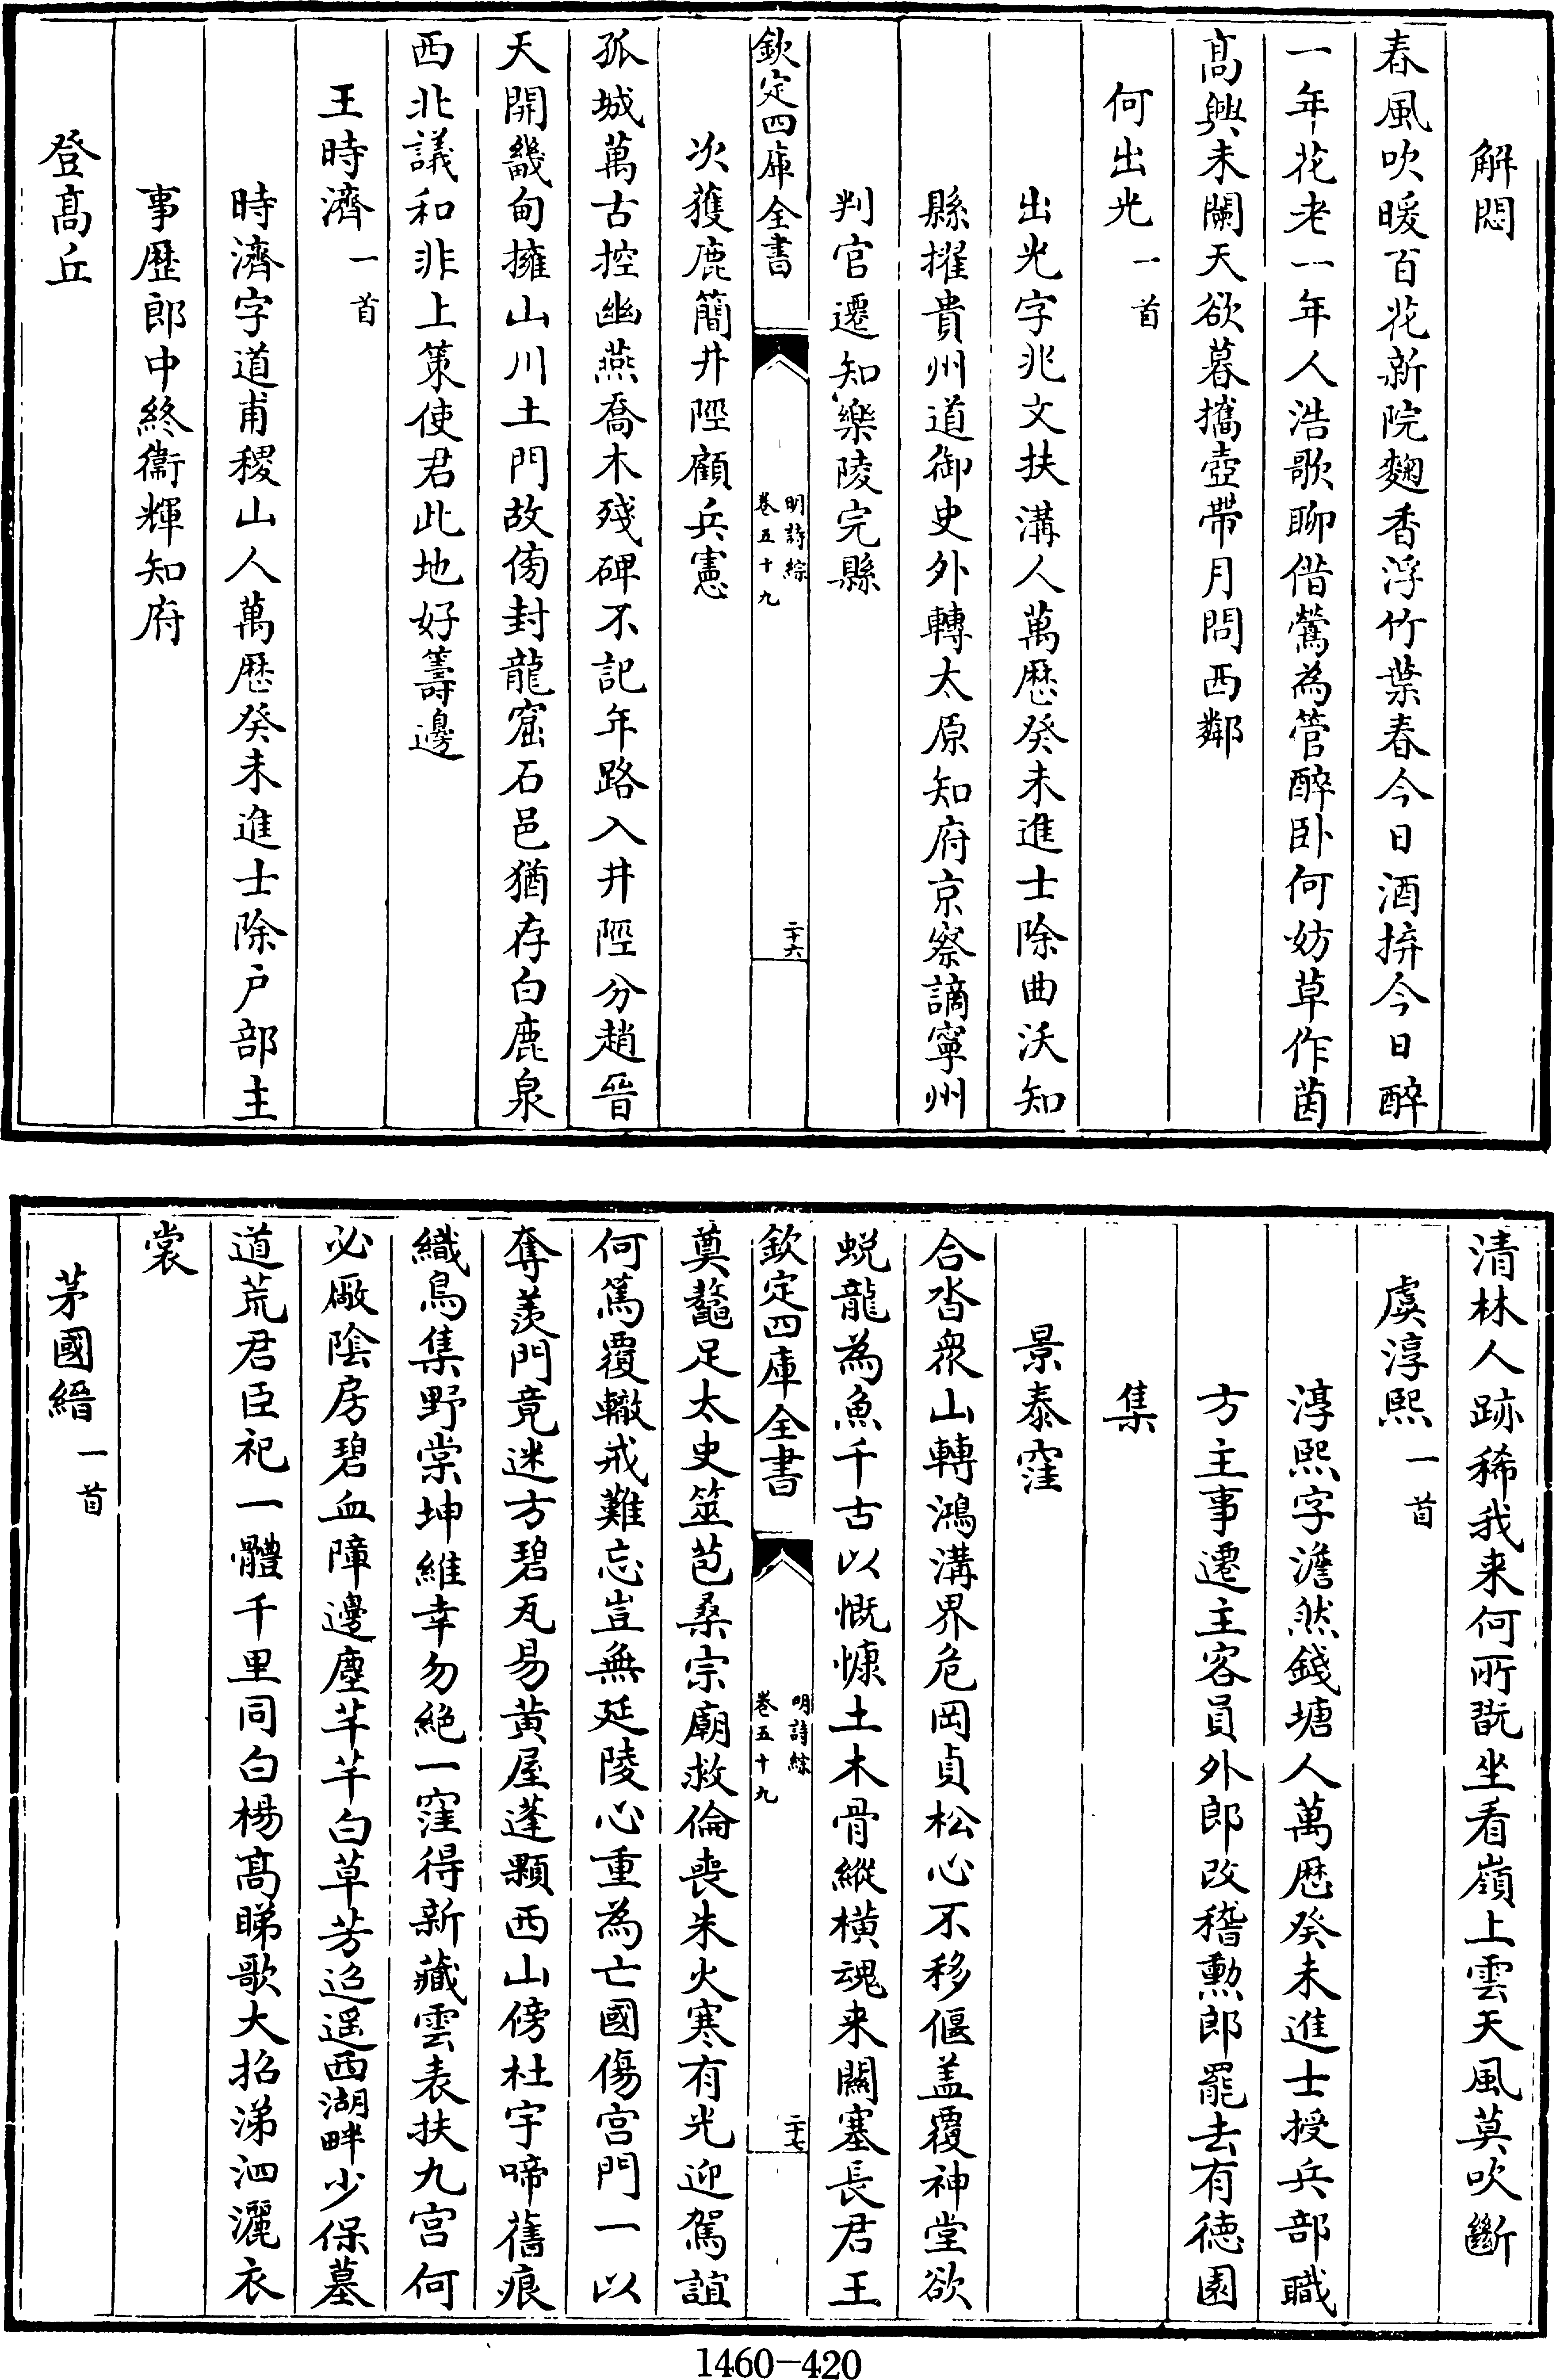 解悶
春風吹暖百花新院麴香浮竹葉春今日酒拚今日醉
一年花老一年人浩歌聊借鶯為管醉卧何妨草作茵
髙興未闌天欲暮攜壺帶月問西鄰
何出光一首
出光字兆文扶溝人萬歴癸未進士除曲沃知
縣擢貴州道御史外轉太原知府京察謫寧州
判官遷知樂陵完縣
欽定四庫全書
明詩綜
卷五十九
二十六
次獲鹿簡井陘顧兵憲
孤城萬古控幽燕喬木殘碑不記年路入井陘分趙晉
天開畿甸擁山川土門故傍封龍窟石邑猶存白鹿泉
西北議和非上策使君此地好籌邊
王時濟一首
時濟字道甫稷山人萬歴癸未進士除户部主
事歴郎中終衞輝知府
登髙丘
清林人跡稀我来何所翫坐看嶺上雲天風莫吹斷
虞淳熙一首
淳熙字澹然錢塘人萬歴癸未進士授兵部職
方主事遷主客員外郎改稽勲郎罷去有徳園
集
景泰窪
合沓衆山轉鴻溝界危岡貞松心不移偃盖覆神堂欲
蜕龍為魚千古以慨慷土木骨縱横魂来關塞長君王
欽定四庫全書
明詩綜
卷五十九
二十七
奠鼇足太史筮苞桑宗廟救倫喪朱火寒有光迎駕誼
何篤覆轍戒難忘豈無延陵心重為亡國傷宫門一以
奪羨門竟迷方碧瓦易黄屋蓬顆西山傍杜宇啼舊痕
織鳥集野棠坤維幸勿絶一窪得新藏雲表扶九宫何
必厰陰房碧血障邊塵芊芊白草芳迢遥西湖畔少保墓
道荒君臣祀一體千里同白楊髙睇歌大招涕泗灑衣
裳
茅國縉一首
1460-420